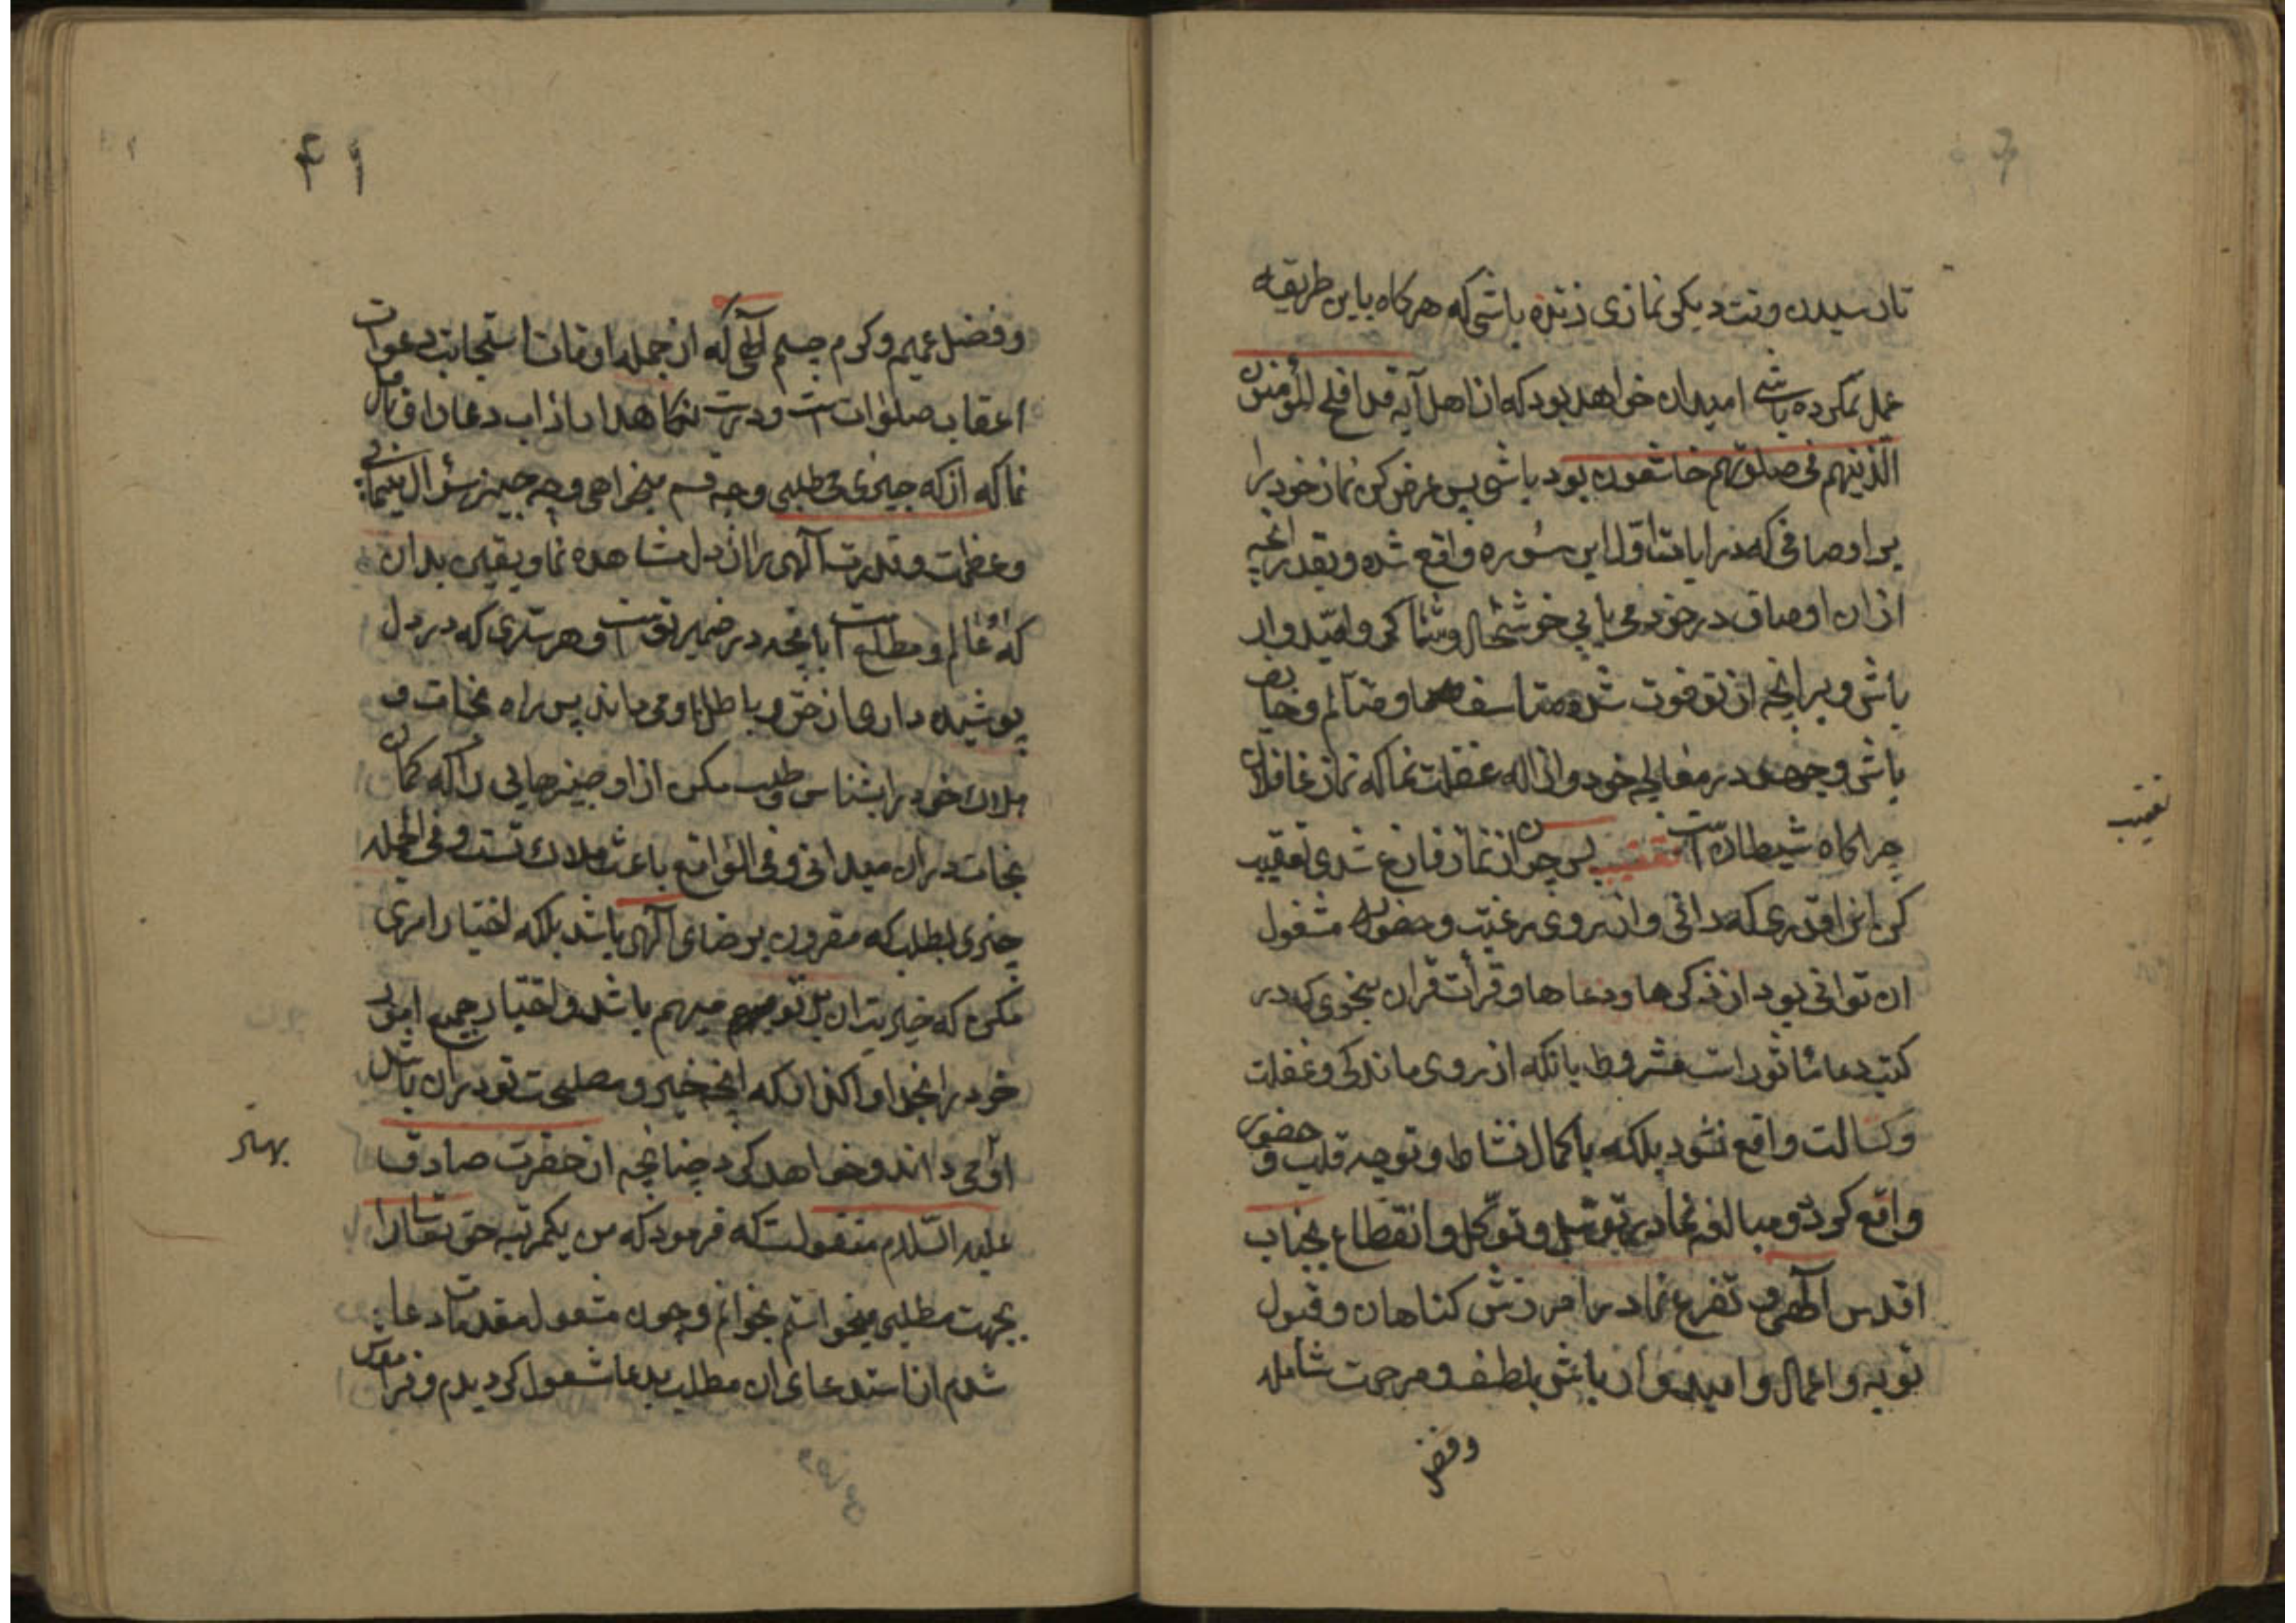 تا رسیدن وقت دیگر نمازی زنده باشی که هرکاه باین طریقه
عمل کرده باشی امید ان خواهد بود که از اهل آیه قد افلح المؤمنون
الذینهم فی صلوتهم خاشعون بود باشی پس عرض کن نماز خود را
بر اوصافی که در ایات اول این سُوره واقع شده و بقدر انچه
از ان اوصاف در خود می یابی خوشحال و شاکر و امیدوار
باش و بر انچه از تو فوت شده متاسف و متألم و خایف
باش و جهد در معالجه خود و ازاله غفلت نما که نماز غافلان
چراکاه شیطانست تعقیب پس چون از نماز فارغ شدی تعقیب
کن انقدری که دانی و از روی رغبت و حضور مشغول
ان توانی بود از ذکرها و دعاها و قرأت قران بنحوی که در
کتب دعا ماثور است مشروط بانکه از روی ماندکی و غفلت
و کسالت واقع نشود بلکه با کمال نشاط و توجه قلب و حضور
واقع کردد و مبالغه نما در توسل و توکل و انقطاع بجناب
اقدس آلهی و تضرع نما در امرزش کناهان و قبول
توبه و اعمال و امیدوار باش بلطف و مرحمت شامله
وفضل
تعقیب
۴۱
و فضل عمیم و کرم جسیم آلهی که از جمله اوقات استجابت دعوات
اعقاب صلوات است و درست نکاهدار اداب دعا را و تامل
نما که از که چیزی می طلبی و چه قسم میخواهی و چه چیز سؤال مینمائی
و عظمت و قدرت آلهی را از دل مشاهده نما و یقین بدان
که او عالم و مطلع است بانچه در ضمیر تو است و هر سّری که در دل
پوشیده داری از حق و باطل او می داند پس راه نجات و
هلاک خود را بشناس و طلب مکن از او چیزهایی را که کمان
نجات در ان میدانی و فی الواقع باعث هلاک تست و فی الجمله
چیزی بطلب که مقرون برضای آلهی باشد بلکه اختیار امری
مکن که خیریت ان بر تو مبهم باشد و اختیار جمیع امور
خود را بخدا واکذار که انچه خیر و مصلحت تو در ان باشد
او می داند و خواهد کرد چنانچه از حضرت صادق
علیه السّلام منقولست که فرمود که من یکمرتبه حق تعالی را
بجهت مطلبی میخواستم بخوانم و چون مشغول مقدمات دعا
شدم از استدعای ان مطلب بدعا مشغول کردیدم و فراموش
بهتر